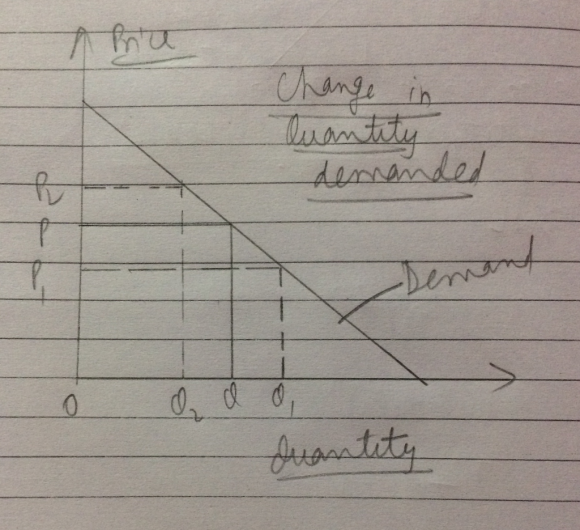 Price
Change in
Quantity
demanded
P2
P
P1
Demand
O
Q2
Q
Q1
Quantity